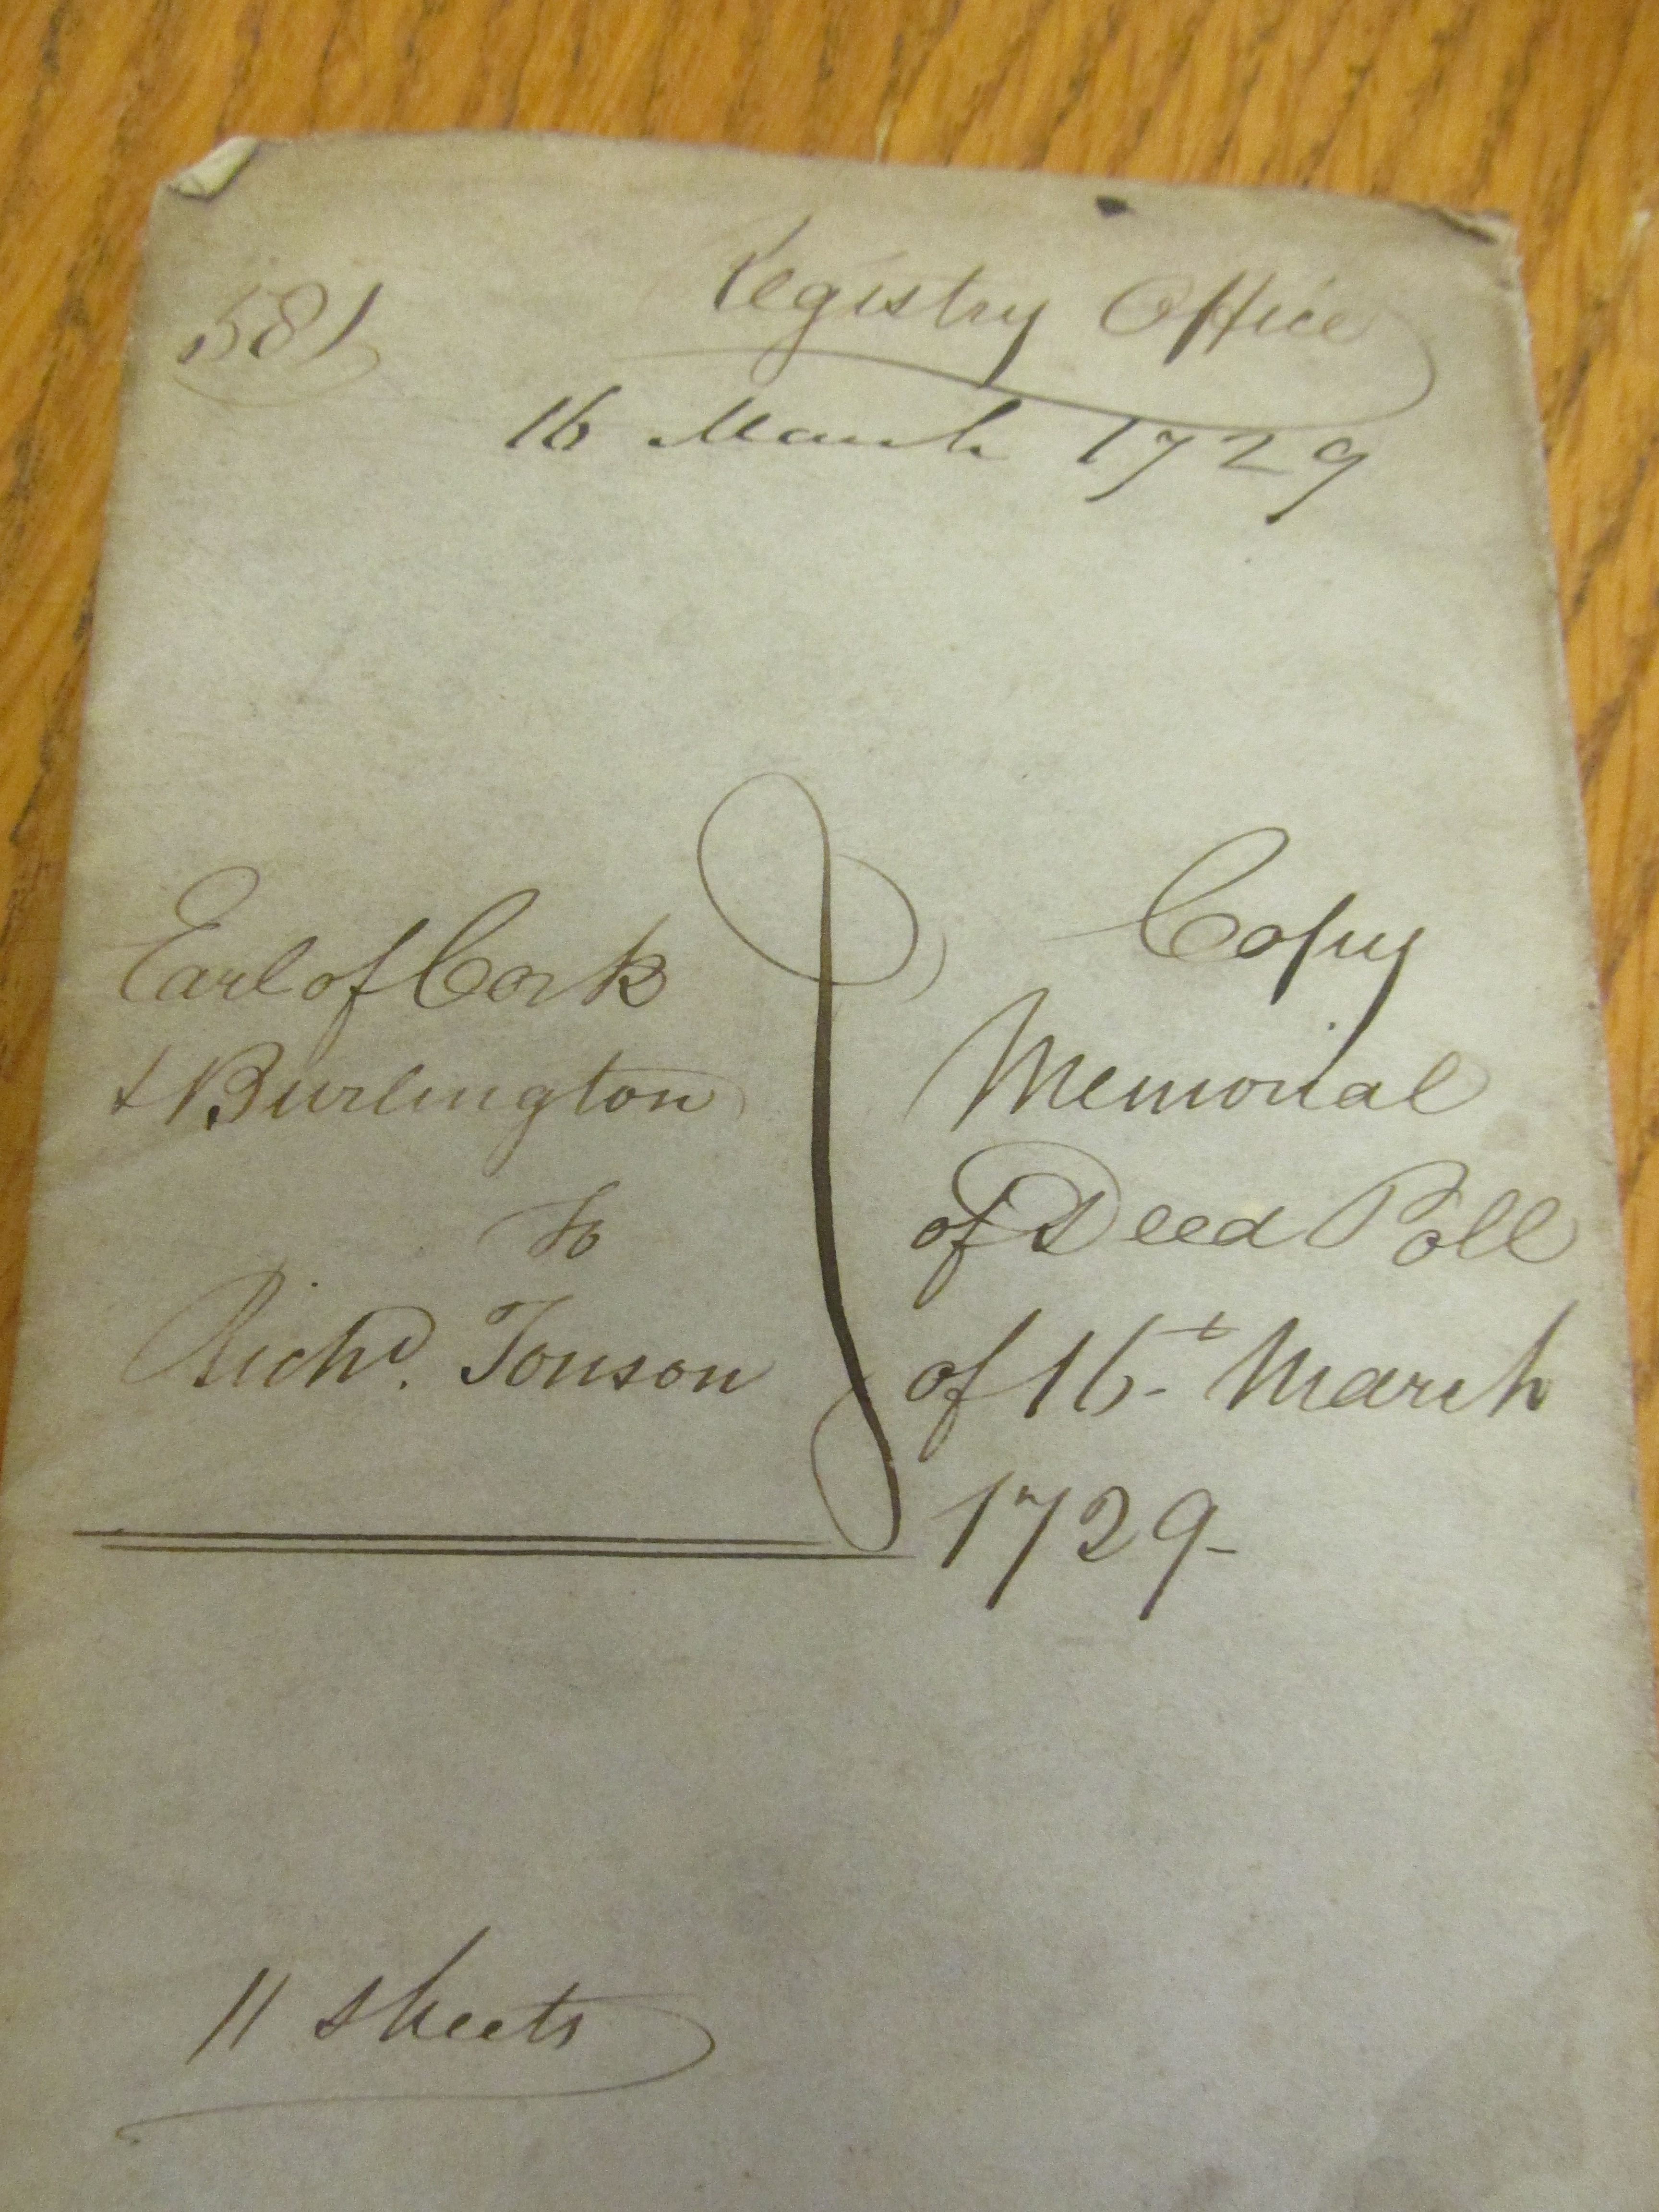 581
Registry Office
16 March 1729
Earl of Cork
& Burlington
to
Richd. Tonson
Copy
Memorial
of Deed Poll
of 16t March
1729-
11 sheets